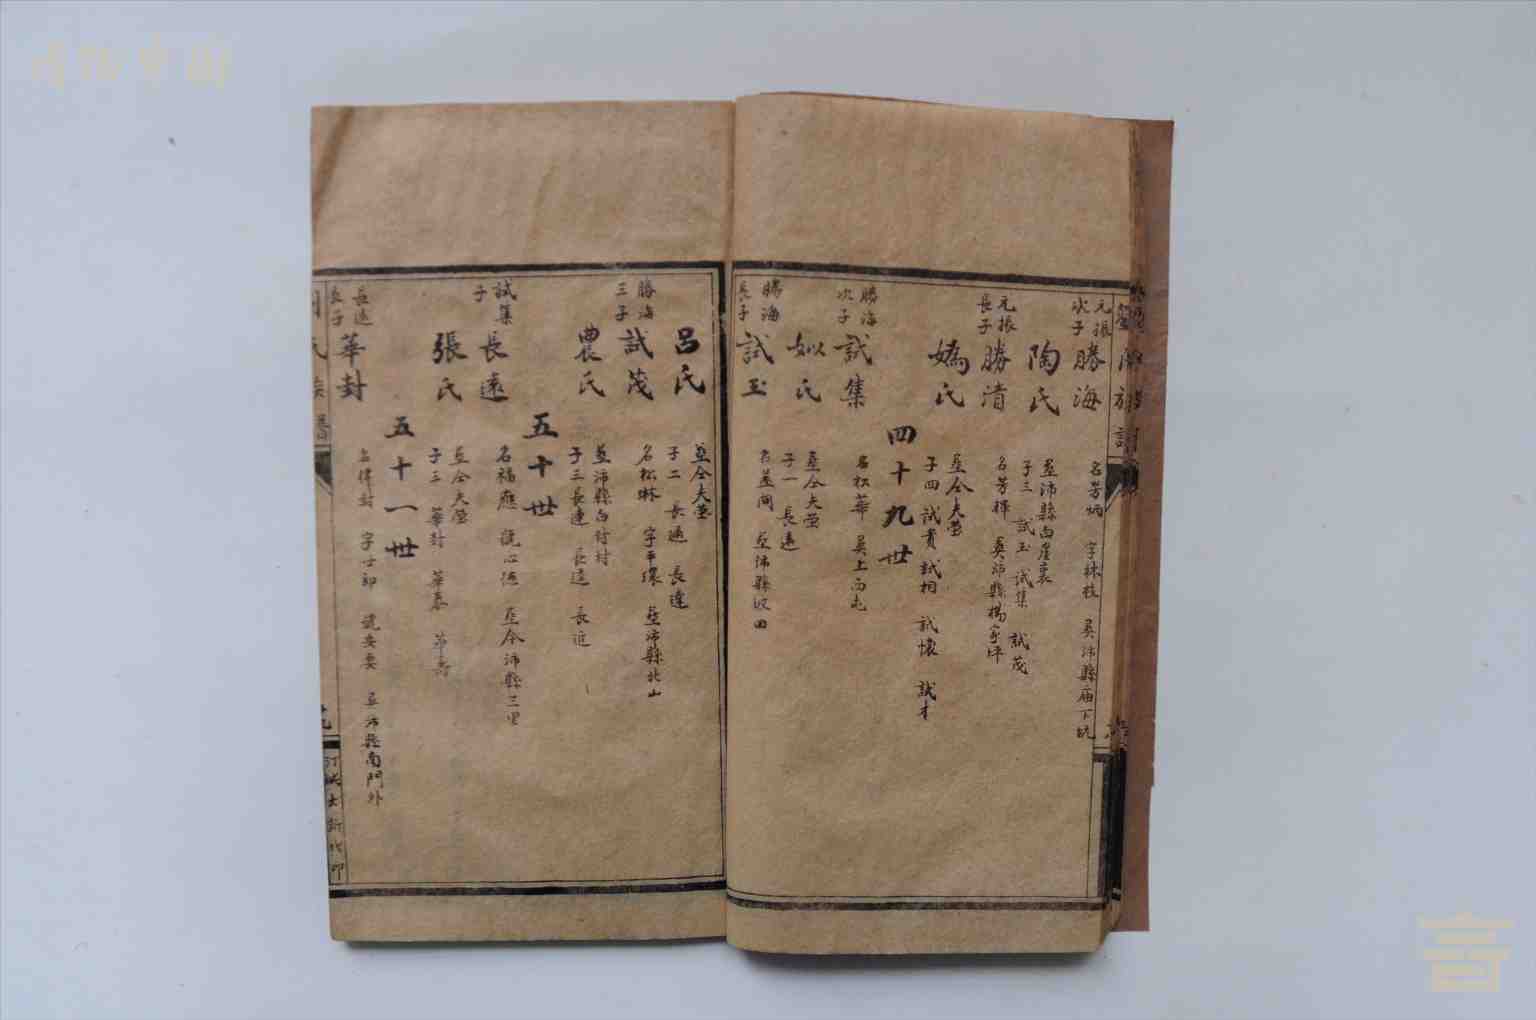 元振
次子
勝海
名芳炳 字林枝 葬沛縣庙下坑
陶氏
葬沛縣白崖裏
子三 試玉 試集 試茂
元振
長子
勝清
名芳禪 葬沛縣楊家坪
嬌氏
葬仝夫塋
子四 試貴 試相 試懷 試才
四十九世
勝海
次子
試集
名松華 葬上西屯
姒氏
葬仝夫塋
子一 長遠
勝海
長子
試玉
葬沛縣坡田
呂氏
葬仝夫塋
子二 長通 長達
勝海
三子
試茂
名松林 字平環 葬沛縣北山
農氏
葬沛縣白村村
子三 長連 長遠 長近
五十世
試集
子
長遠
名福應 號心德 葬仝沛縣三里
張氏
葬仝夫塋
子三 華封 華泰 華壽
五十一世
長遠
長子
華封
名得封 字士郎 號安要 葬沛縣南門外
十九